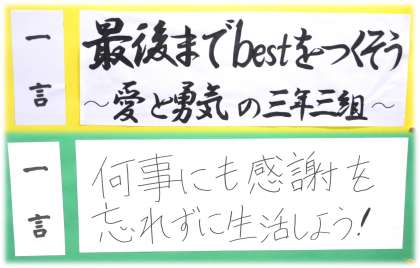 一言
最後までbestをつくそう
～愛と勇気の三年三組～
一言
何事にも感謝を
忘れずに生活しよう!